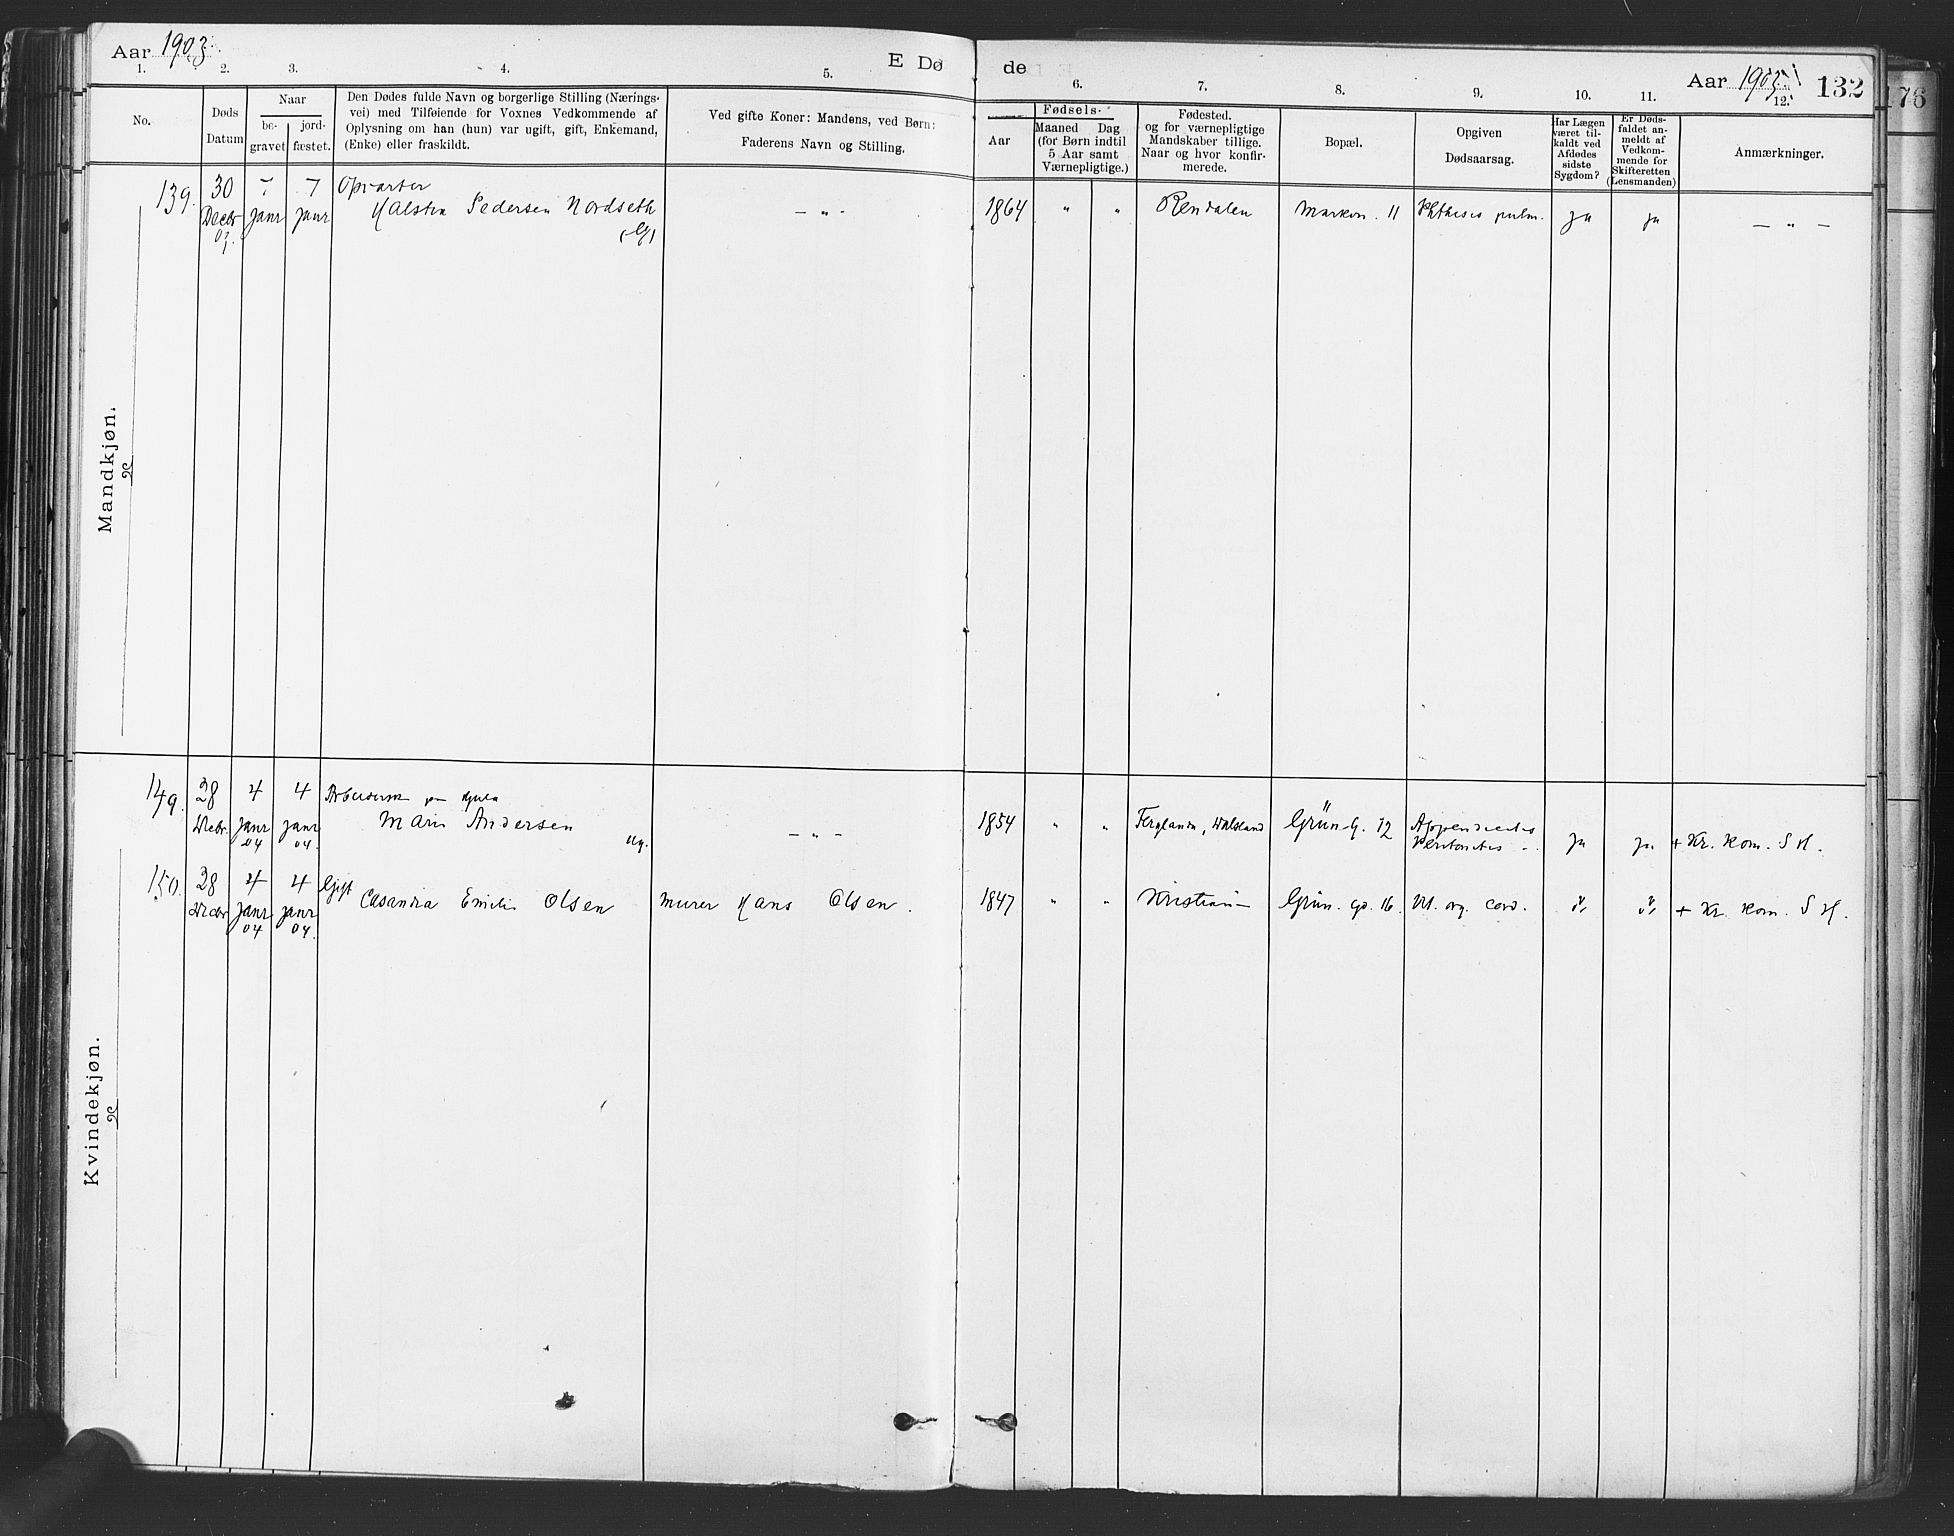 Aar 1903.
E Dø
de
Aar 1903.
132
176
1. 2. 3. 4. 5. 6. 7. 8. 9. 10. 11. 12.
No.
Døds Datum
Naar
be- gravet
jord- fæstet.
Den Dødes fulde Navn og borgerlige Stilling (Nærings-
vei) med Tilføiende for Voxnes Vedkommende af
Oplysning om han (hun) var ugift, gift, Enkemand,
(Enke) eller fraskildt.
Ved gifte Koner: Mandens, ved Børn:
Faderens Navn og Stilling.
Fødsels-
Aar
Maaned Dag
(for Børn indtil
5 Aar samt
Værnepligtige.)
Fødested.
og for værnepligtige
Mandskaber tillige.
Naar og hvor konfir-
merede.
Bopæl.
Opgiven
Dødsaarsag.
Har Lægen
været til-
kaldt ved
Afdødes
sidste
Sygdom?
Er Døds-
faldet an-
meldt af
Vedkom-
mende for
Skifteretten
(Lensmanden)
Anmærkninger.
Mandkjøn.
139. 30 7 7 Opvarter
Decbr Janr Janr Halsten Pedersen Nordseth — " — 1864 " " Rendalen Markv. 11 Phthisis pulm. ja ja — " —
03.
Kvindekjøn.
149. 28 4 4
Decbr. Janr Janr Marie Andersen ug. — " — 1854 " " Grün. G. 12 Appendicitis
04 04. Peritonitis ja ja + Kr. Kom. S H.
150. 28 4 4 Gift
Decbr Janr Janr Casandra Emilie Olsen Murer Hans Olsen. 1847 " " Kristiania Grün. gd. 16. Vit. org. cord. " " + Kr. Kom. S H.
04 04.